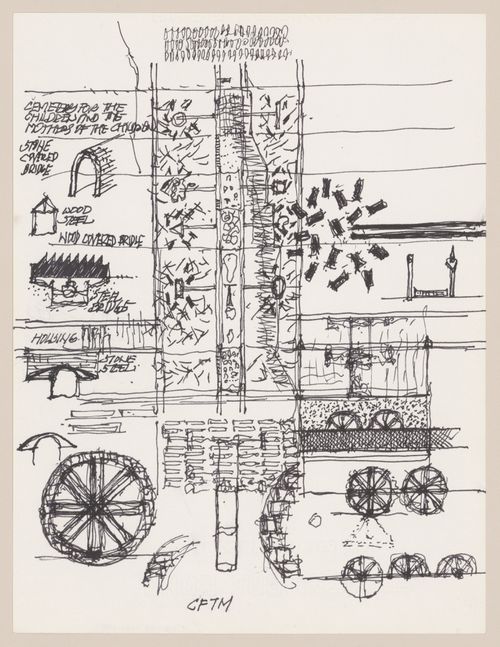 CEMETERY FOR THE
CHILDREN AND THE
MOTHERS OF THE CHILDREN
STONE
COVERED
BRIDGE
WOOD
STEEL
WOOD COVERED BRIDGE
STEEL
BRIDGES
HOUSING
STONE
STEEL
CFTM